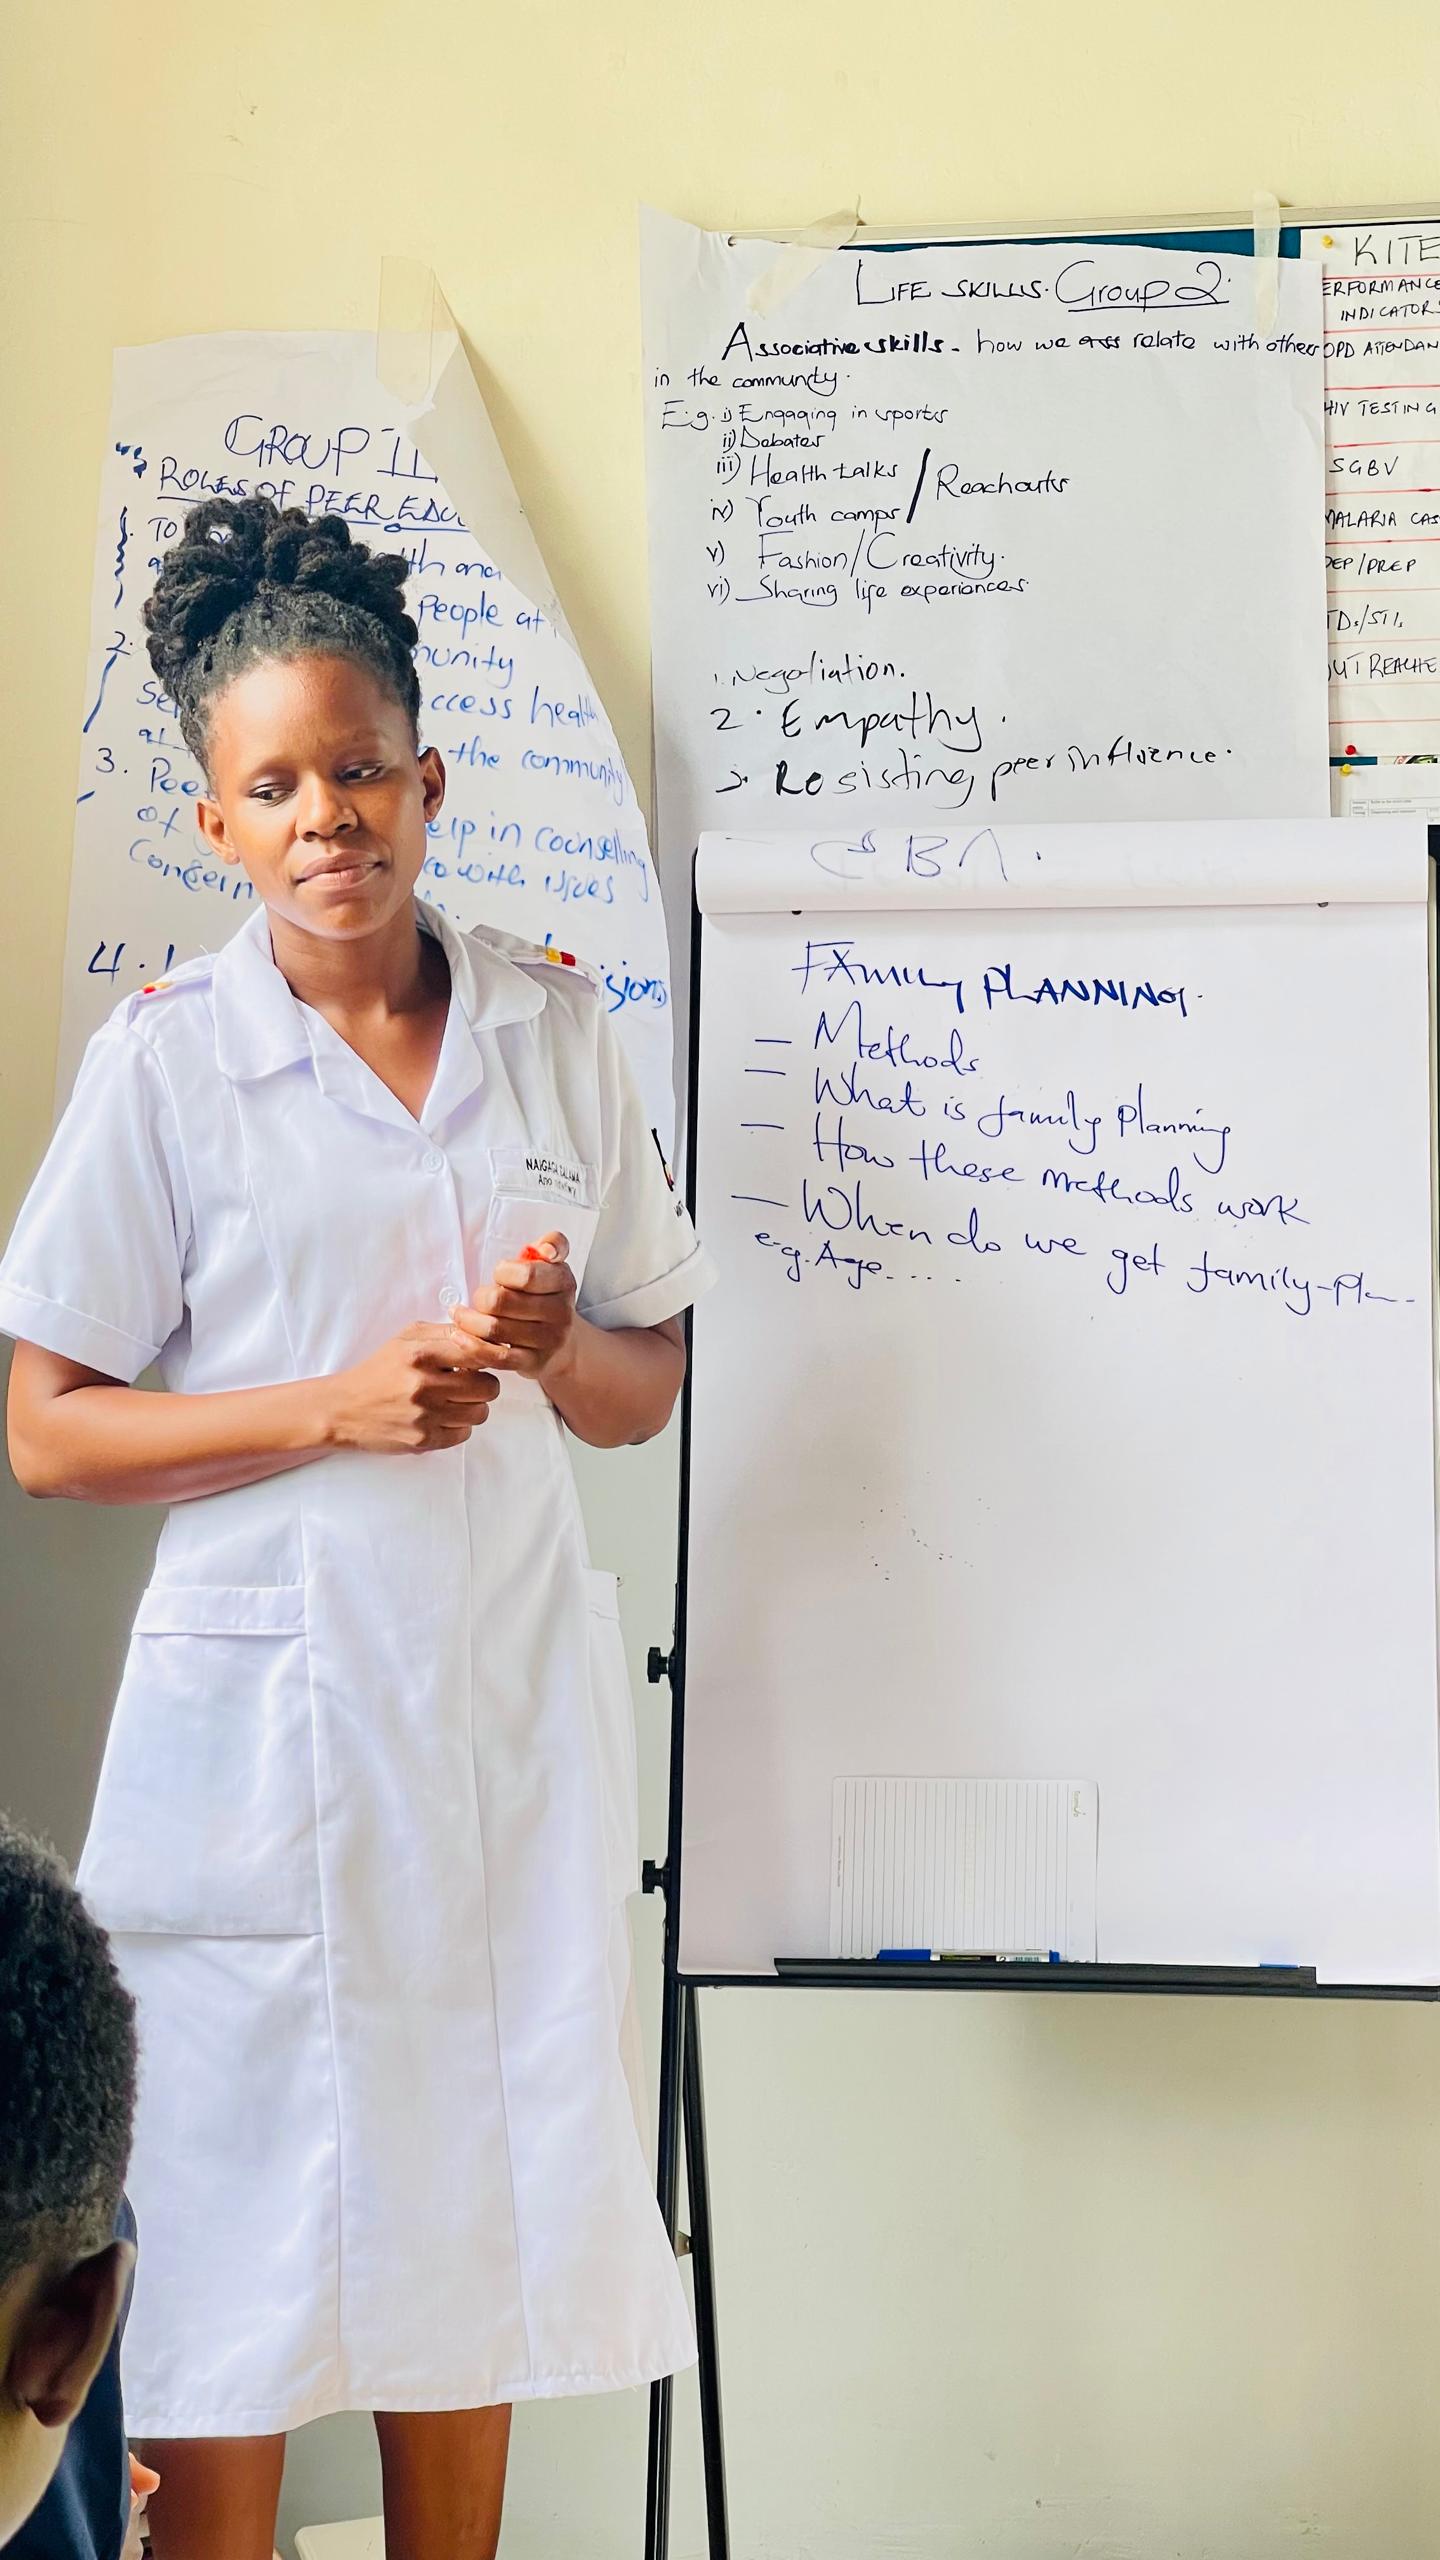 GROUP II
ROLES OF PEER
1. TO
th and
People at
2.
munity
ccess health
at the community
3. Peer
of elp in counselling
Concern with issues
4.
LIFE SKILLS. Group 2.
Associative skills - how we relate with others
in the community.
E.g. i) Engaging in sports
ii) Debates
iii) Health talks / Reachouts
iv) Youth camps
v) Fashion/Creativity.
vi) Sharing life experiences
1. Negotiation.
2. Empathy.
3. Resisting peer influence.
KITE
ERFORMANCE
INDICATORS
OPD ATTENDAN
HIV TESTING
SGBV
MALARIA CAS
PEP/PREP
TDs/STIs
OUTREACHE
FAMILY PLANNING.
— Methods
— What is family planning
— How these methods work
— When do we get family-pl
e.g. Age....
NAIGAGA